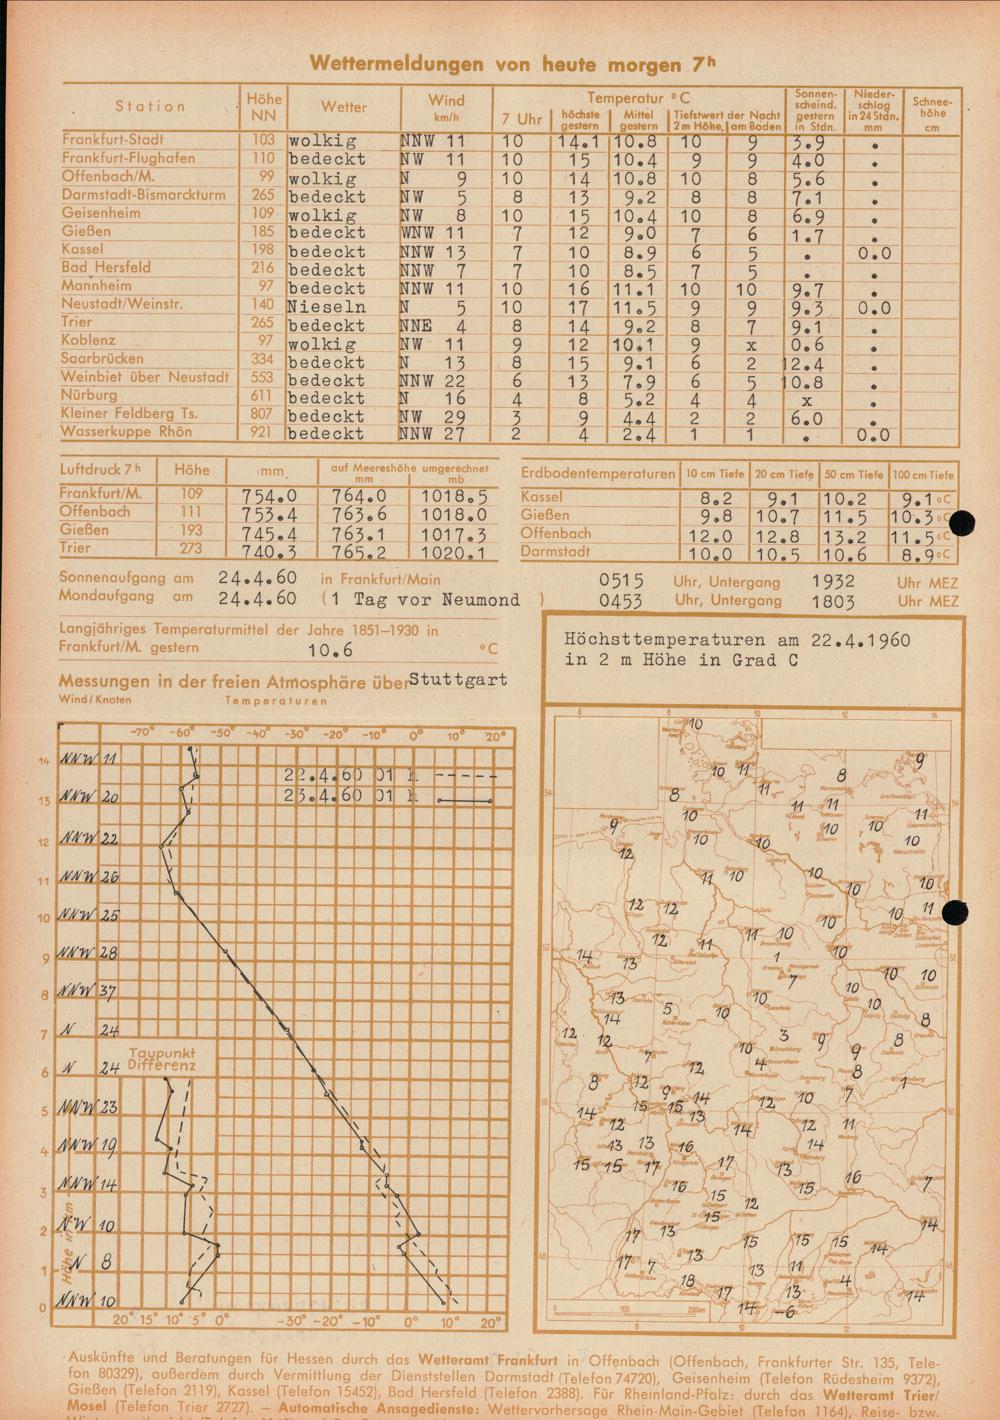 Wettermeldungen von heute morgen 7h
Station Höhe NN Wetter Wind km/h Temperatur °C Sonnenscheind. gestern in Stdn. Niederschlag in 24 Stdn. mm Schneehöhe cm
7 Uhr höchste gestern Mittel gestern Tiefstwert der Nacht 2 m Höhe am Boden
Frankfurt-Stadt 103 wolkig NNW 11 10 14.1 10.8 10 9 3.9 .
Frankfurt-Flughafen 110 bedeckt NW 11 10 15 10.4 9 9 4.0 .
Offenbach/M. 99 wolkig N 9 10 14 10.8 10 8 5.6 .
Darmstadt-Bismarckturm 265 bedeckt NW 5 8 13 9.2 8 8 7.1 .
Geisenheim 109 wolkig NW 8 10 15 10.4 10 8 6.9 .
Gießen 185 bedeckt WNW 11 7 12 9.0 7 6 1.7 .
Kassel 198 bedeckt NNW 13 7 10 8.9 6 5 . 0.0
Bad Hersfeld 216 bedeckt NNW 7 7 10 8.5 7 5 . .
Mannheim 97 bedeckt NNW 11 10 16 11.1 10 10 9.7 .
Neustadt/Weinstr. 140 Nieseln N 5 10 17 11.5 9 9 9.3 0.0
Trier 265 bedeckt NNE 4 8 14 9.2 8 7 9.1 .
Koblenz 97 wolkig NW 11 9 12 10.1 9 x 0.6 .
Saarbrücken 334 bedeckt N 13 8 15 9.1 6 2 12.4 .
Weinbiet über Neustadt 553 bedeckt NNW 22 6 13 7.9 6 5 10.8 .
Nürburg 611 bedeckt N 16 4 8 5.2 4 4 x .
Kleiner Feldberg Ts. 807 bedeckt NW 29 3 9 4.4 2 2 6.0 .
Wasserkuppe Rhön 921 bedeckt NNW 27 2 4 2.4 1 1 . 0.0
Luftdruck 7h Höhe mm auf Meereshöhe umgerechnet mm mb
Frankfurt/M. 109 754.0 764.0 1018.5
Offenbach 111 753.4 763.6 1018.0
Gießen 193 745.4 763.1 1017.3
Trier 273 740.3 765.2 1020.1
Erdbodentemperaturen 10 cm Tiefe 20 cm Tiefe 50 cm Tiefe 100 cm Tiefe
Kassel 8.2 9.1 10.2 9.1 °C
Gießen 9.8 10.7 11.5 10.3 °C
Offenbach 12.0 12.8 13.2 11.5 °C
Darmstadt 10.0 10.5 10.6 8.9 °C
Sonnenaufgang am 24.4.60 in Frankfurt/Main 0515 Uhr, Untergang 1932 Uhr MEZ
Mondaufgang am 24.4.60 (1 Tag vor Neumond ) 0453 Uhr, Untergang 1803 Uhr MEZ
Langjähriges Temperaturmittel der Jahre 1851–1930 in
Frankfurt/M. gestern 10.6 °C
Messungen in der freien Atmosphäre über Stuttgart
Wind/Knoten Temperaturen
-70° -60° -50° -40° -30° -20° -10° 0° 10° 20°
22.4.60 01 h
23.4.60 01 h
14 NNW 11
13 NNW 20
12 NNW 22
11 NNW 26
10 NNW 25
9 NNW 28
8 NNW 37
7 N 24
6 N 24
Taupunkt
Differenz
5 NNW 23
4 NNW 19
3 NNW 14
2 NW 10
1 N 8
0 NNW 10
Höhe in km
20° 15° 10° 5° 0° -30° -20° -10° 0° 10° 20°
Höchsttemperaturen am 22.4.1960
in 2 m Höhe in Grad C
6 8 10 12 14
10
10 11 8 9
8 11 11 11
9 10 10 10 11
12 10 10 10
11 10 10 10 10
12 12 10 10 11
12 11 11 10 10
14 13 1 7 10 10
13 5 10 10 10
14 8
12 12 3 9 8
7 10 9
8 12 12 4 8 1
9 14 12 10 7
14 15 15 13
12 14 12 11
13 13 16 14
15 15 17 17 13
16 15 15 16 7
15 12
17 13 15 15 15 14
17 7 13 13 11 14
18 17 13 4 14
14 -6
0 100 200km
Auskünfte und Beratungen für Hessen durch das Wetteramt Frankfurt in Offenbach (Offenbach, Frankfurter Str. 135, Tele-
fon 80329), außerdem durch Vermittlung der Dienststellen Darmstadt (Telefon 74720), Geisenheim (Telefon Rüdesheim 9372),
Gießen (Telefon 2119), Kassel (Telefon 15452), Bad Hersfeld (Telefon 2388). Für Rheinland-Pfalz: durch das Wetteramt Trier/
Mosel (Telefon Trier 2727). – Automatische Ansagedienste: Wettervorhersage Rhein-Main-Gebiet (Telefon 1164), Reise- bzw.